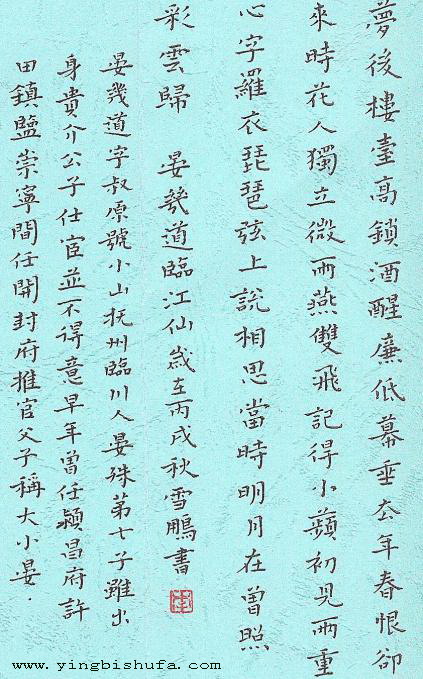 夢後樓臺高鎖酒醒廉低幕垂去年春恨卻
來時花人獨立微雨燕雙飛記得小蘋初見兩重
心字羅衣琵琶弦上說相思當時明月在曾照
彩雲歸 晏幾道臨江仙歲在丙戌秋雪鵬書
晏幾道字叔原號小山抚州臨川人晏殊第七子雖出
身貴介公子仕宦並不得意早年曾任潁昌府許
田鎮鹽崇寧間任開封府推官父子稱大小晏.
www.yingbishufa.com